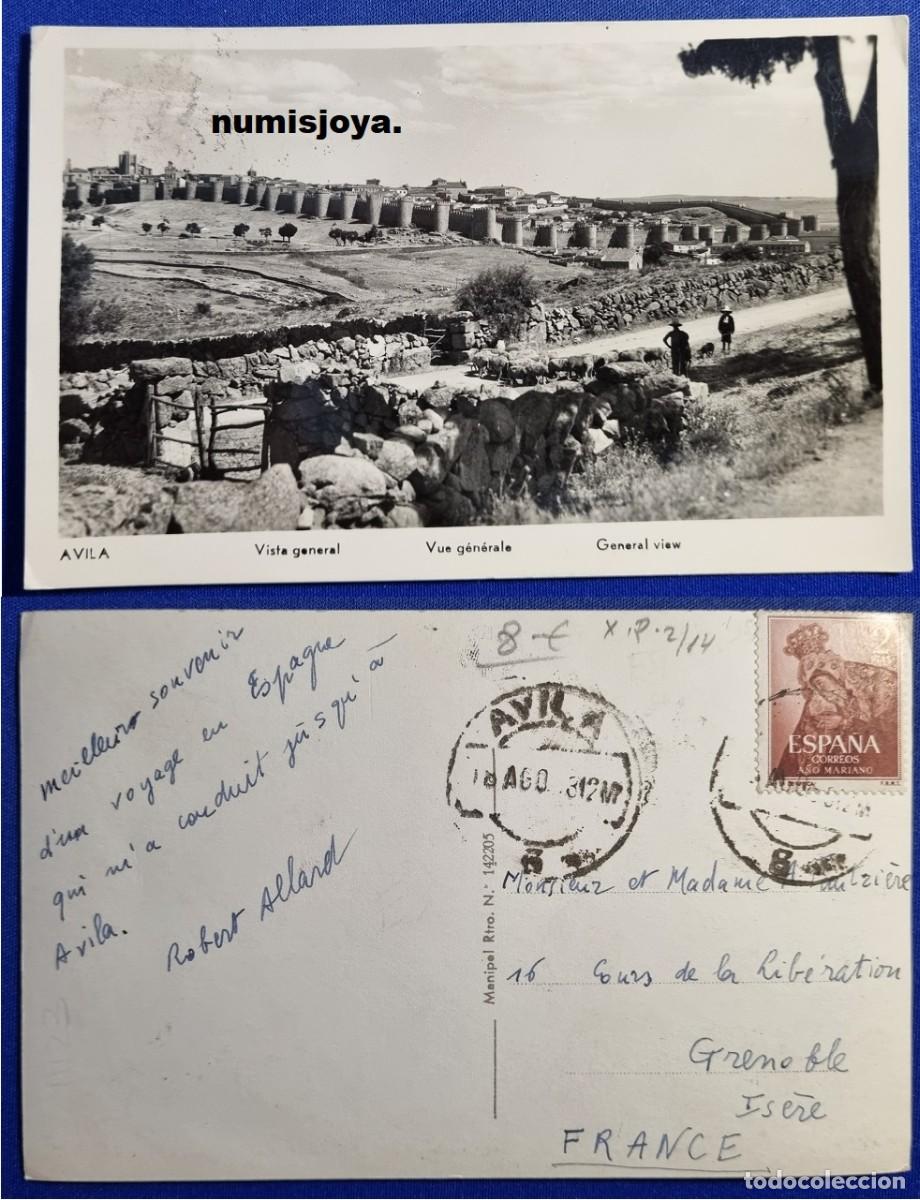 numisjoya.
AVILA Vista general Vue générale General view
8.-€
X.P.2/14
meilleurs souvenir
d'un voyage en Espagne
qui m'a conduit jusqu'à
Avila.
Robert Allard
AVILA
18 AGO 12M
Manipel Rtro. N.° 142205
ESPAÑA
CORREOS
AÑO MARIANO
Monsieur et Madame
16 Cours de la Libération
Grenoble
Isère
FRANCE
todocoleccion